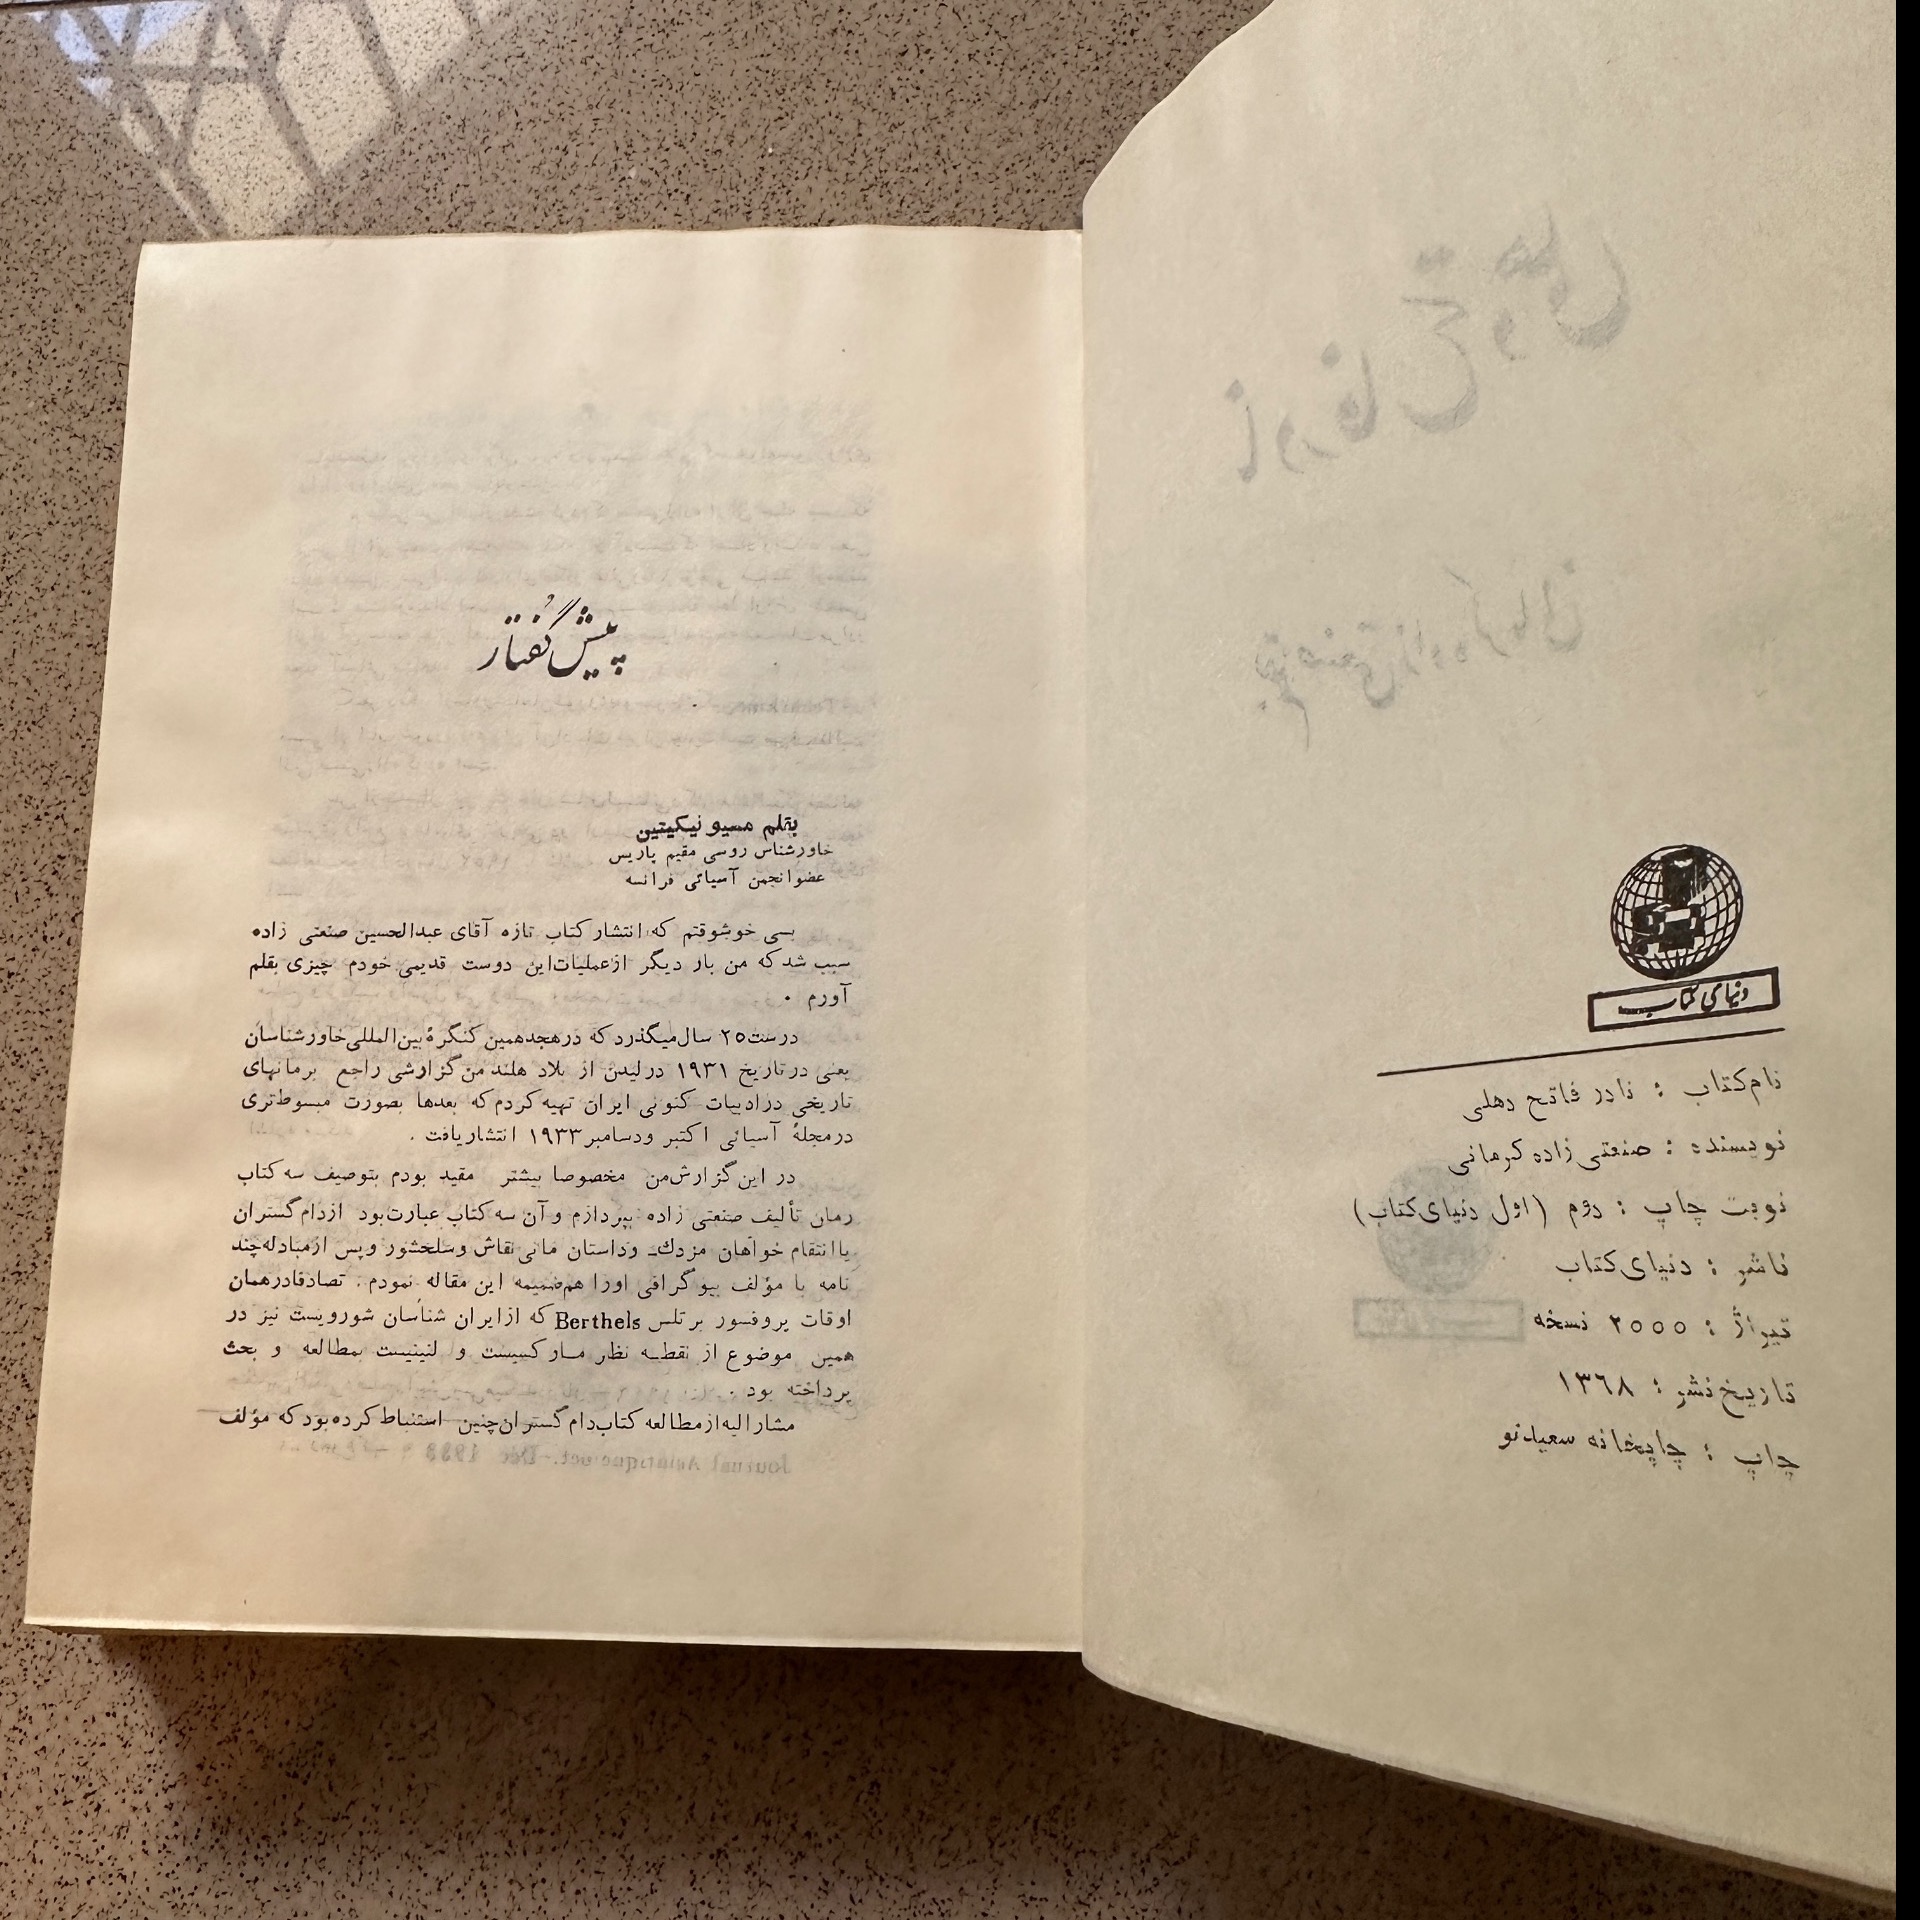 دنیای کتاب
نام کتاب : نادر فاتح دهلی
نویسنده : صنعتی زاده کرمانی
نوبت چاپ : دوم (اول دنیای کتاب)
ناشر : دنیای کتاب
تیراژ : ۲۰۰۰ نسخه
تاریخ نشر : ۱۳٦۸
چاپ : چاپخانه سعیدنو
پیش گفتار
بقلم مسیو نیکیتین
خاورشناس روسی مقیم پاریس
عضو انجمن آسیائی فرانسه
بسی خوشوقتم که انتشار کتاب تازه آقای عبدالحسین صنعتی زاده
سبب شد که من بار دیگر از عملیات این دوست قدیمی خودم چیزی بقلم
آورم .
درست ۲۵ سال میگذرد که در هجدهمین کنگرهٔ بین‌المللی خاورشناسان
یعنی در تاریخ ۱۹۳۱ در لیدن از بلاد هلند من گزارشی راجع برمانهای
تاریخی در ادبیات کنونی ایران تهیه کردم که بعدها بصورت مبسوط‌تری
در مجلهٔ آسیائی اکتبر ودسامبر ۱۹۳۳ انتشار یافت .
در این گزارش من مخصوصا بیشتر مقید بودم بتوصیف سه کتاب
رمان تألیف صنعتی زاده بپردازم و آن سه کتاب عبارت بود از دام گستران
یا انتقام خواهان مزدك وداستان مانی نقاش وسلحشور وپس از مبادله چند
نامه با مؤلف بیو گرافی اورا هم ضمیمه این مقاله نمودم . تصادفا در همان
اوقات پروفسور برتلس Berthels که از ایران شناسان شورویست نیز در
همین موضوع از نقطه نظر مارکسیست و لنینیست بمطالعه و بحث
پرداخته بود .
مشارالیه از مطالعه کتاب دام گستران چنین استنباط کرده بود که مؤلف